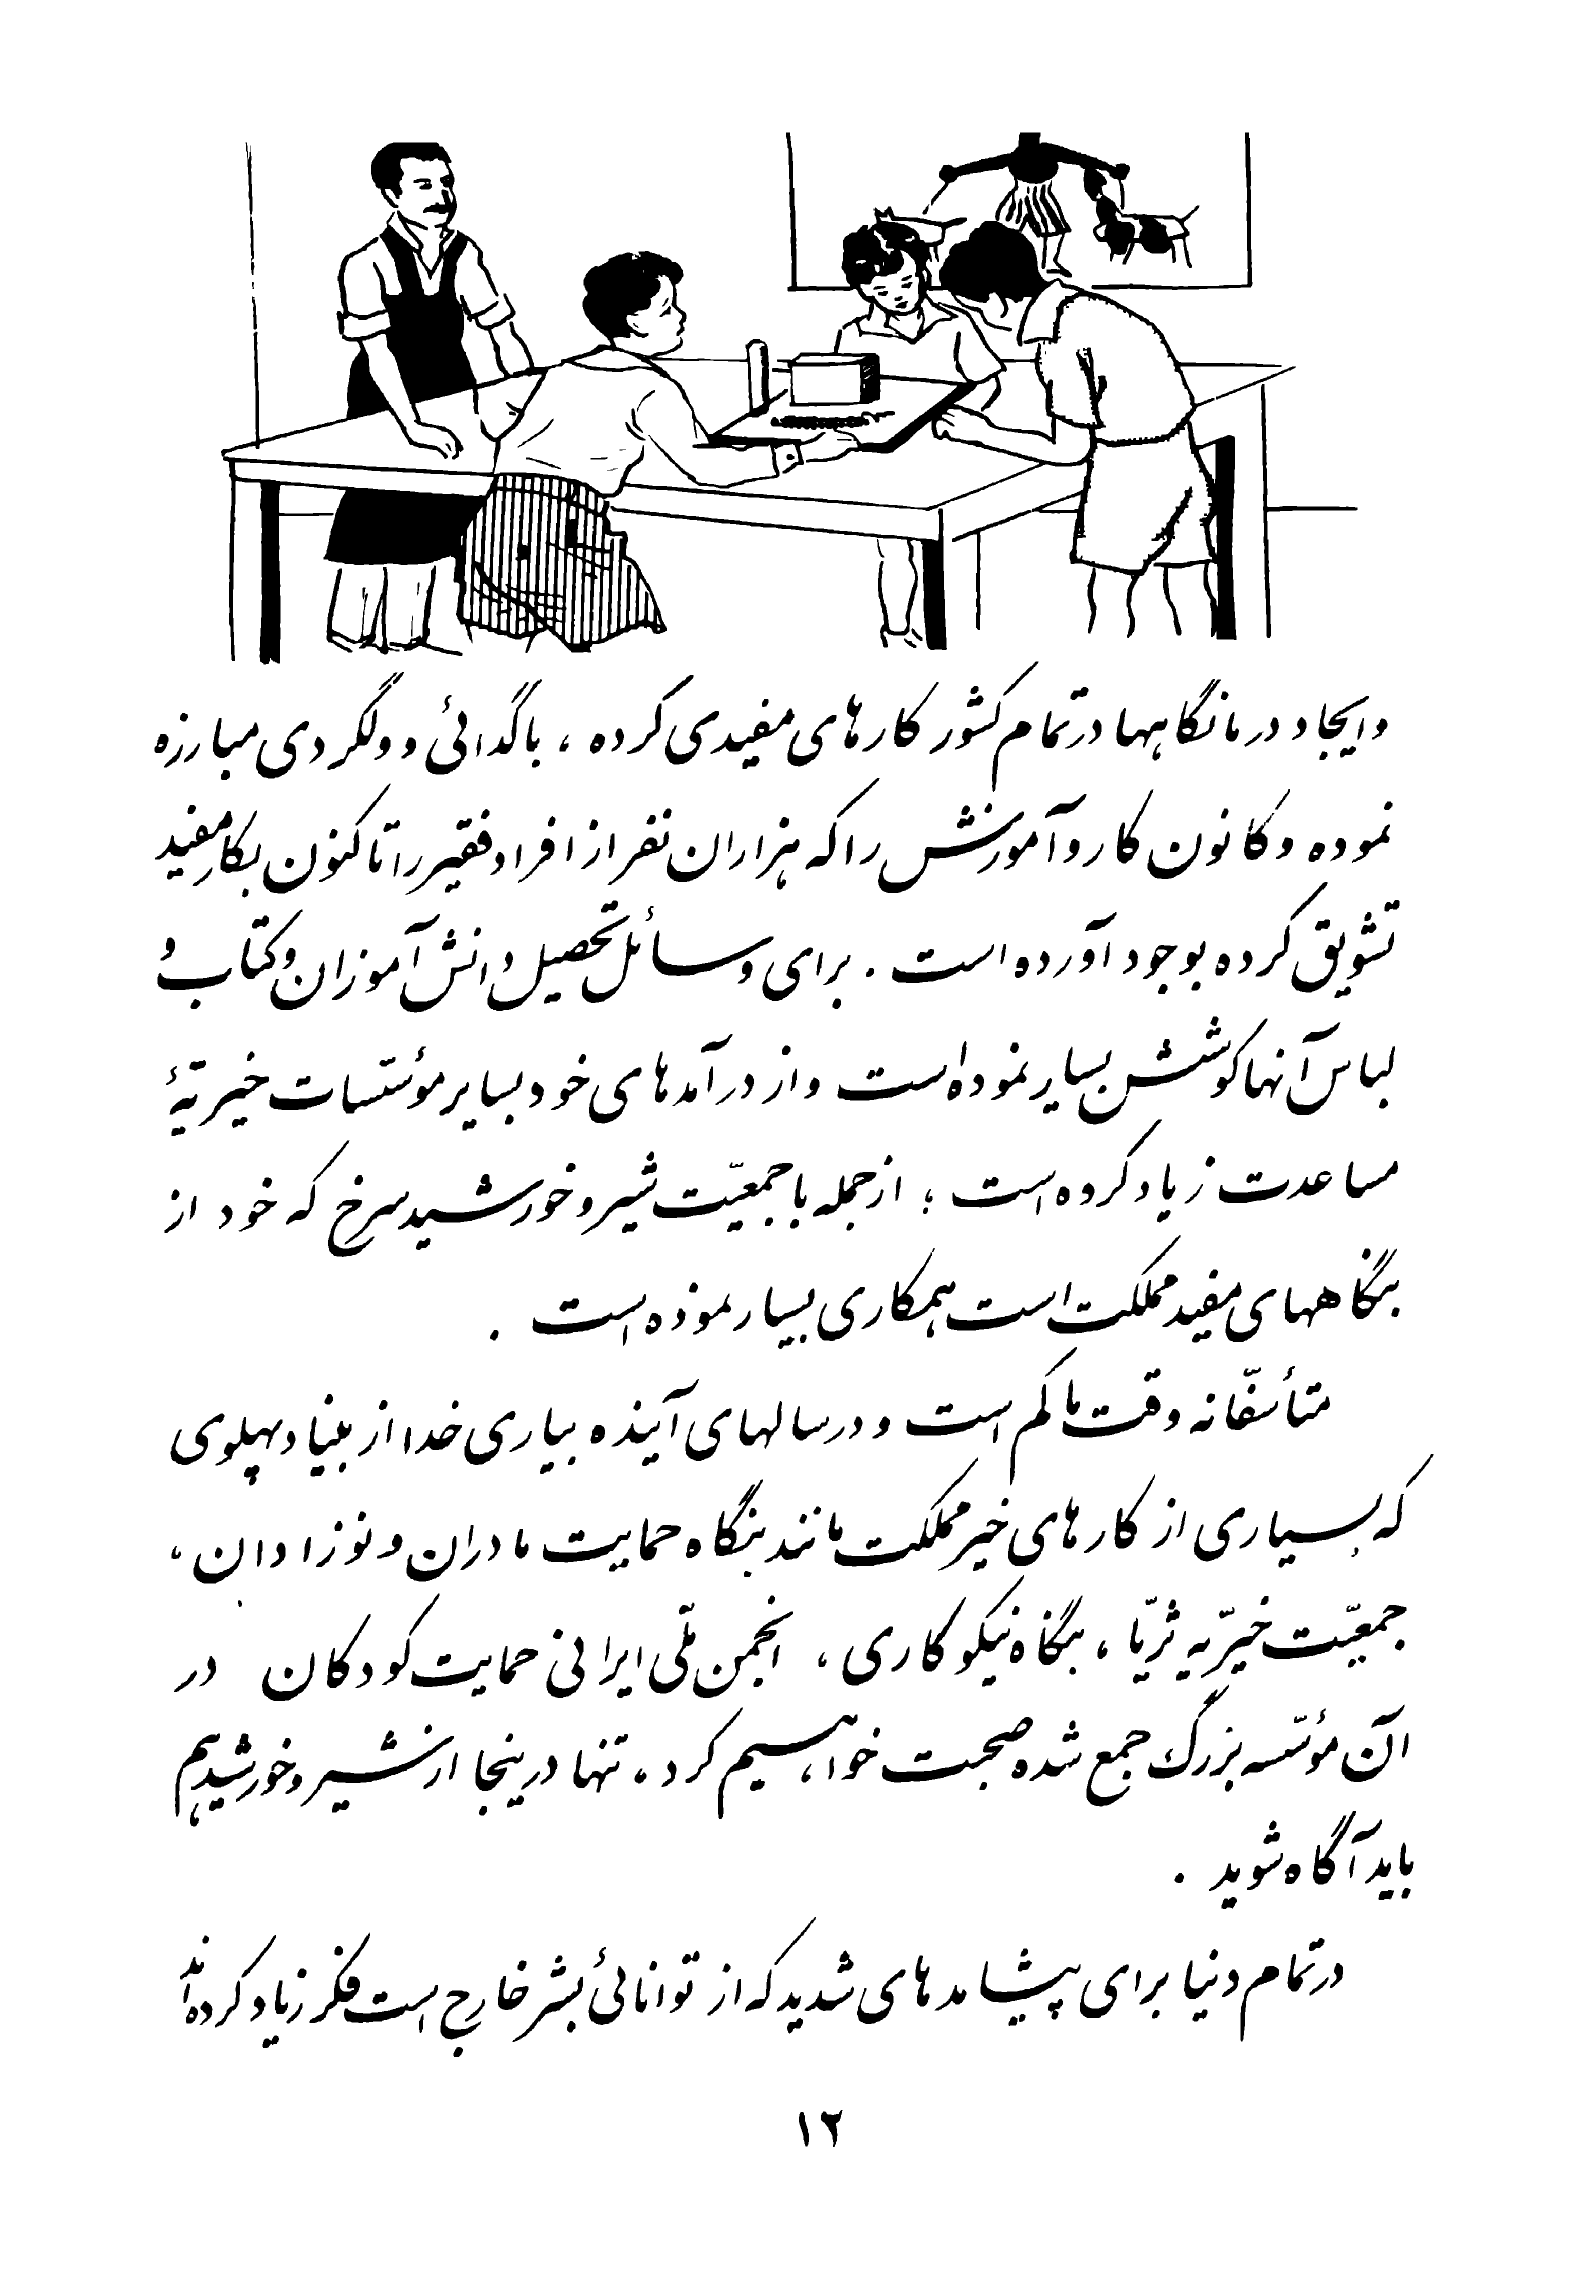 وایجاد درمانگاهها در تمام کشور کارهای مفیدی کرده ، با گدائی و ولگردی مبارزه
نموده و کانون کار و آموزش را که هزاران نفر از افراد فقیر را تا کنون بکار مفید
تشویق کرده بوجود آورده است . برای وسائل تحصیل دانش آموزان و کتاب و
لباس آنها کوشش بسیار نموده است و از درآمدهای خود بسایر مؤسّسات خیریّهٔ
مساعدت زیاد کرده است ؛ از جمله با جمعیّت شیر و خورشید سرخ که خود از
بنگاههای مفید مملکت است همکاری بسیار نموده است .
متأسّفانه وقت ما کم است و در سالهای آینده بیاری خدا از بنیاد پهلوی
که بسیاری از کارهای خیر مملکت مانند بنگاه حمایت مادران و نوزادان ،
جمعیّت خیریّه ثریّا ، بنگاه نیکوکاری ، انجمن ملّی ایرانی حمایت کودکان در
آن مؤسّسه بزرگ جمع شده صحبت خواهیم کرد ، تنها در ینجا از شیر و خورشید هم
باید آگاه شوید .
در تمام دنیا برای پیشامدهای شدید که از توانائی بشر خارج است فکر زیاد کرده اند
۱۲